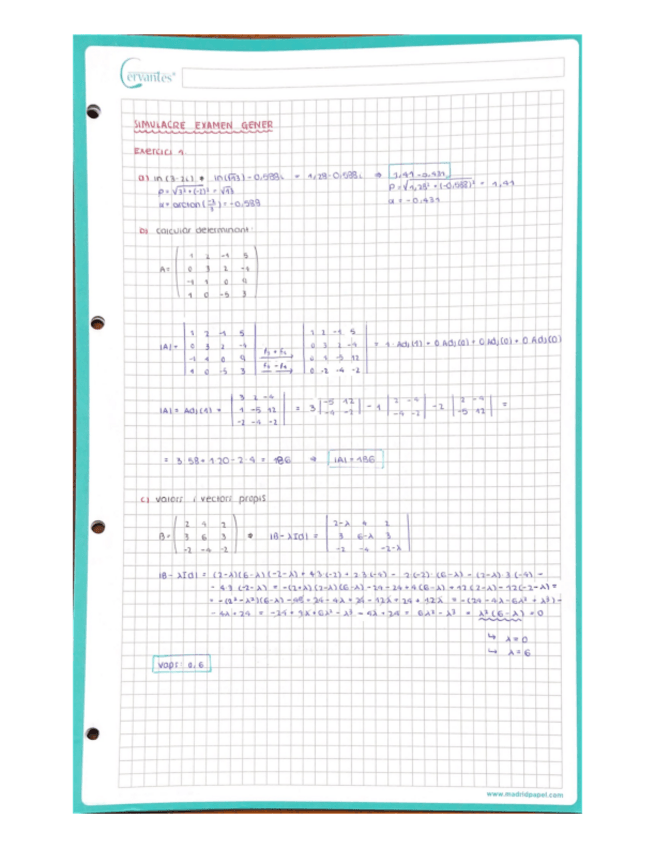 Cervantes®
SIMULACRE EXAMEN GENER
EXERCICI 1
a) ln(3-2i) • ln(√13) - 0,588i = 1,28 - 0,588i ⇒ 1,41 -0,431
ρ = √3²+(-2)² = √13 ρ = √1,28² + (-0,588)² = 1,41
α = arctan(-2/3) = -0,588 α = -0,431
b) calcular determinant:
A = ( 1 2 -1 5
0 3 2 -4
-1 1 0 4
1 0 -5 3 )
|A| = | 1 2 -1 5
0 3 2 -4
-1 1 0 4
1 0 -5 3 |
| 1 2 -1 5
0 3 2 -4
0 -2 -4 -2 | = 1 · Adj(1) + 0 Adj(0) + 0 Adj(0) + 0 Adj(0)
|A| = Adj(1) = | 3 2 -4
-2 -4 -2 | = 3 | -5 12
-4 -2 | - 1 | 2 -4
-4 -2 | - 2 | 2 -4
-5 12 | =
= 3·58 + 1·20 - 2·4 = 186 ⇒ |A| = 186
c) valors i vectors propis
B = ( 2 4 2
3 6 3
-2 -4 -2 ) • |B - λId| = | 2-λ 4 2
3 6-λ 3
-2 -4 -2-λ |
|B - λId| = (2-λ)(6-λ)(-2-λ) + 4·3·(-2) + 2·3·(-4) - 2(-2)·(6-λ) - (2-λ)·3·(-4) -
- 4·3·(-2-λ) = -(2+λ)(2-λ)(6-λ) - 24 - 24 + 4(6-λ) + 12(2-λ) - 12(-2-λ) =
- 4λ + 24 = 6λ² - λ³ = λ²(6-λ) = 0
↳ λ=0
↳ λ=6
vaps: 0, 6
www.madridpapel.com